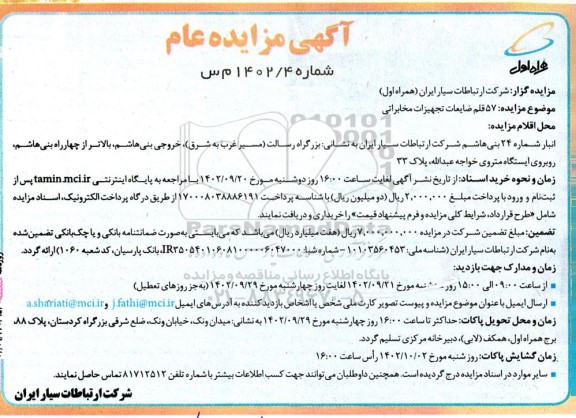 همراه اول
آگهی مزایده عام
شماره ۱۴۰۲/۴ م س
مزایده گزار: شرکت ارتباطات سیار ایران (همراه اول)
موضوع مزایده: ۵۷ قلم ضایعات تجهیزات مخابراتی
محل اقلام مزایده:
انبار شماره ۲۴ بنی‌هاشم شرکت ارتباطات سیار ایران به نشانی: بزرگراه رسالت (مسیر غرب به شرق)، خروجی بنی‌هاشم، بالاتر از چهارراه بنی‌هاشم،
روبروی ایستگاه متروی خواجه عبدالله، پلاک ۳۳
زمان و نحوه خرید اسناد: از تاریخ نشر آگهی لغایت ساعت ۱۶:۰۰ روز دوشنبه مورخ ۱۴۰۲/۰۹/۲۰ با مراجعه به پایگاه اینترنتی tamin.mci.ir پس از
ثبت‌نام و ورود با پرداخت مبلغ ۲,۰۰۰,۰۰۰ ریال (دو میلیون ریال) با شناسه پرداخت ۱۷۰۰۰۸۰۳۸۸۸۶۱۹۱ از طریق درگاه پرداخت الکترونیک، اسناد مزایده
شامل «طرح قرارداد، شرایط کلی مزایده و فرم پیشنهاد قیمت» را خریداری و دریافت نمایند.
تضمین: مبلغ تضمین شرکت در مزایده ۷,۰۰۰,۰۰۰,۰۰۰ ریال (هفت میلیارد ریال) می‌باشد که می‌بایستی به‌صورت ضمانتنامه بانکی و یا چک بانکی تضمین شده
به‌نام شرکت ارتباطات سیار ایران (شناسه ملی: ۱۰۱۰۳۵۶۰۴۵۳ - شماره شبا: بانک پارسیان، کد شعبه ۱۰۶۰) ارائه گردد.
زمان و مدارک جهت بازدید:
از ساعت ۰۹:۰۰ الی ۱۵:۰۰ روز مورخ ۱۴۰۲/۰۹/۲۱ لغایت روز چهارشنبه مورخ ۱۴۰۲/۰۹/۲۹ (به‌جز روزهای تعطیل)
ارسال ایمیل با عنوان موضوع مزایده و پیوست تصویر کارت ملی شخص یا اشخاص بازدیدکننده به آدرس‌های ایمیل j.fathi@mci.ir و a.shariati@mci.ir
زمان و محل تحویل پاکات: حداکثر تا ساعت ۱۶:۰۰ روز چهارشنبه مورخ ۱۴۰۲/۰۹/۲۹ به نشانی: میدان ونک، خیابان ونک، ضلع شرقی بزرگراه کردستان، پلاک ۸۸،
برج همراه اول، همکف (لابی)، دبیرخانه مرکزی تسلیم گردد.
زمان گشایش پاکات: روز شنبه مورخ ۱۴۰۲/۱۰/۰۲ رأس ساعت ۱۶:۰۰
سایر موارد در اسناد مزایده درج گردیده است. همچنین داوطلبان می‌توانند جهت کسب اطلاعات بیشتر با شماره تلفن ۸۱۷۱۲۵۱۲ تماس حاصل نمایند.
شرکت ارتباطات سیار ایران